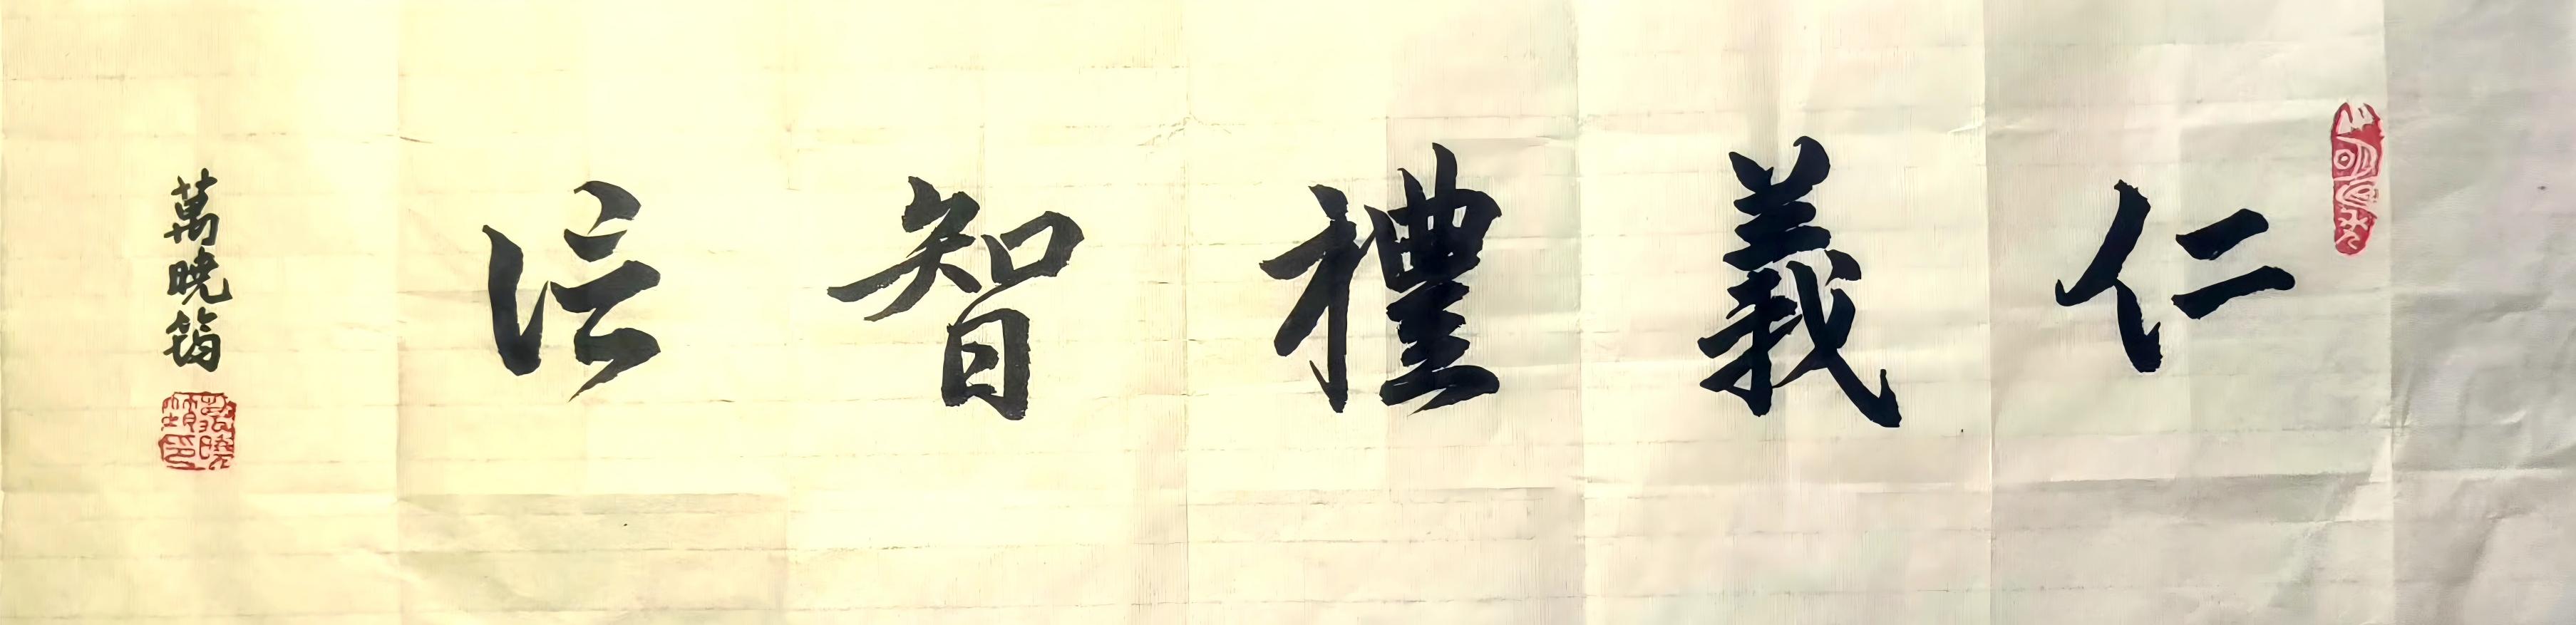 仁義禮智信
萬曉筠